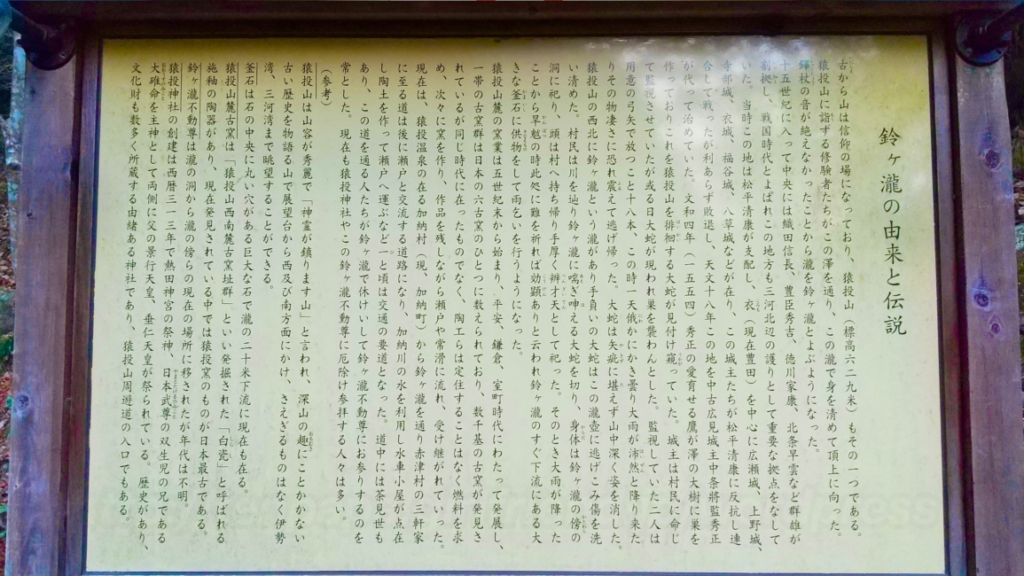 鈴ヶ瀧の由来と伝説
古から山は信仰の場になっており、猿投山（標高六二九米）もその一つである。
猿投山に詣ずる修験者たちがこの澤を通り、この瀧で身を清めて頂上に向った。
錫杖の音が絶えなかったことから瀧を鈴ヶ瀧とよぶようになった。
十五世紀に入って中央には織田信長、豊臣秀吉、徳川家康、北条早雲など群雄が
割拠し、戦国時代とよばれこの地方も三河北辺の護りとして重要な拠点をなして
いた。当時この地は松平清康が支配し、衣（現在豊田）を中心に広瀬城、上野城、
寺部城、衣城、福谷城、八草城などが在り、この城主たちが松平清康に反抗し連
合して戦ったが利あらず敗退し、天文十八年この地を中古広見城主中条將監秀正
が代って治めていた。文和四年（一五五四）秀正の愛育せる鷹が澤の大樹に巣を
作っておりこれを猿投山を徘徊する大蛇が見付け窺っていた。城主は村民に命じ
て監視させていたが或る日大蛇が現われ巣を襲わんとした。監視していた二人は
用意の弓矢で放つこと十八本、この時一天俄かにかき曇り大雨が沛然と降り来た
りその物凄さに恐れ震えて逃げ帰った。大蛇は矢疵に堪えず山中深く姿を消した。
猿投山の西北に鈴ヶ瀧という瀧があり手負いの大蛇はこの瀧壺に逃げこみ傷を洗
い清めた。村民は川を辿り鈴ヶ瀧に喘ぎ呻える大蛇を切り、身体は鈴ヶ瀧の傍の
洞に祀り、頭は村へ持ち帰り手厚く辨才天として祀った。そのとき大雨が降った
ことから旱魃の時此処に難を祈れば効顕ありと云われ鈴ヶ瀧のすぐ下流にある大
きな釜石に供物をして雨乞いを行うようになった。
猿投山麓の窯業は五世紀末から始まり、平安、鎌倉、室町時代にわたって発展し、
一帯の古窯群は日本の六古窯のひとつに数えられており、数千基の古窯が発見さ
れているが同じ時代に在ったものでなく、陶工らは定住することはなく燃料を求
め、次々に窯を作り、作品を残しながら瀬戸や常滑に流れ、受け継がれていった。
現在は、猿投温泉の在る加納村（現、加納町）から鈴ヶ瀧を通り赤津村の三軒家
に至る道は後に瀬戸と交流する道路になり、加納川の水を利用し水車小屋が点在
し陶土を作って瀬戸へ運ぶなど一と頃は交通の要道となっていた。道中には茶見世も
あり、この道を通る人たちが鈴ヶ瀧で休けいして鈴ヶ瀧不動尊にお参りするのを
常とした。現在も猿投神社やこの鈴ヶ瀧不動尊に厄除け参拝する人々は多い。
（参考）
猿投山は山容が秀麗で「神霊が鎮ります山」と言われ、深山の趣にことかかない
古い歴史を物語る山で展望台から西及び南方面にかけ、さえぎるものはなく伊勢
湾、三河湾まで眺望することができる。
釜石は石の中央に丸い穴がある巨大な石で瀧の二十米下流に現在も在る。
猿投山麓古窯は「猿投山西南麓古窯址群」といい発掘された「白瓷」と呼ばれる
施釉の陶器があり、現在発見されている中では猿投窯のものが日本最古である。
鈴ヶ瀧不動尊は最初瀧の洞から瀧の傍らの現在の場所に移されたが年代は不明。
猿投神社の創建は西暦三一三年で熱田神宮の祭神、日本武尊の双生児の兄である
大碓命を主神として両側に父の景行天皇、垂仁天皇が祭られている。歴史があり、
文化財も数多く所蔵する由緒ある神社であり、猿投山周遊道の入口でもある。